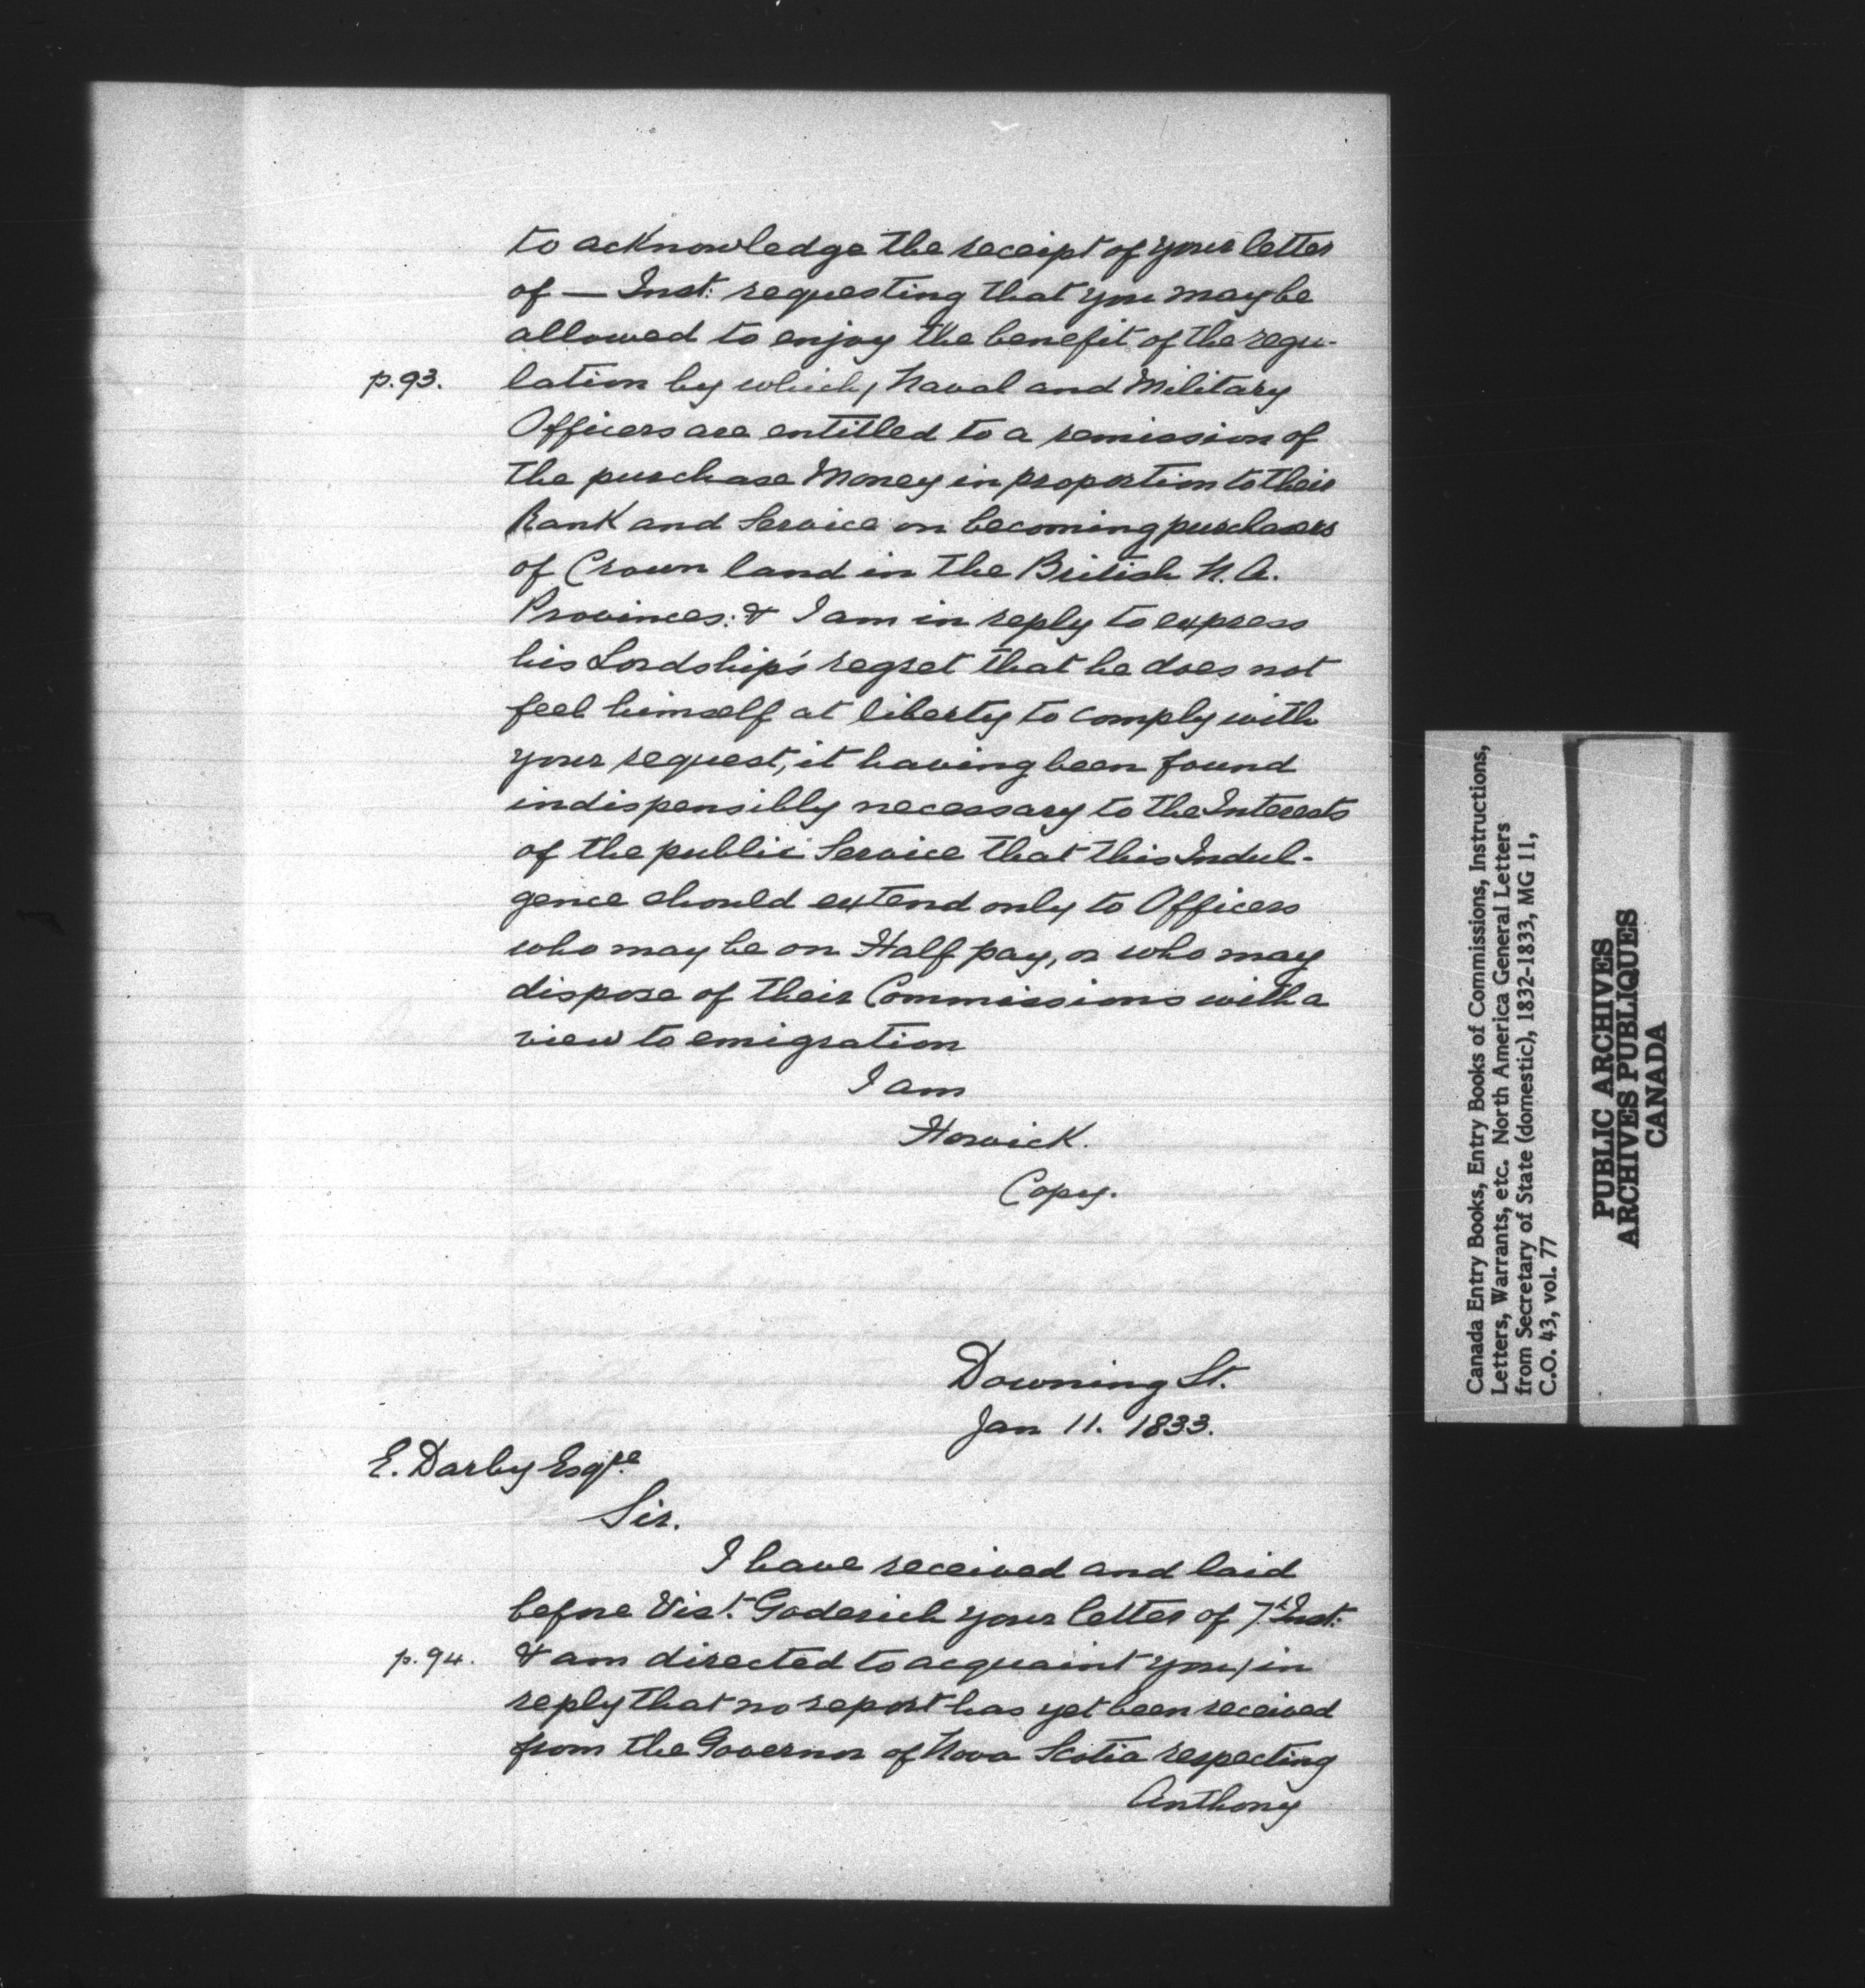 to acknowledge the receipt of your letter
of — Inst: requesting that you may be
allowed to enjoy the benefit of the regu-
p.93. lation by which, Naval and Military
Officers are entitled to a remission of
the purchase Money in proportion to their
Rank and Service on becoming purchasers
of Crown land in the British N. A.
Provinces: & I am in reply to express
his Lordship's regret that he does not
feel himself at liberty to comply with
your request, it having been found
indispensibly necessary to the Interests
of the public Service that this Indul-
gence should extend only to Officers
who may be on Half pay, or who may
dispose of their Commissions with a
view to emigration
I am
Howick.
Copy.
Downing St.
Jan 11. 1833.
E. Darby Esqre
Sir.
I have received and laid
before Vist. Goderich your letter of 7.th Inst:
p.94. & am directed to acquaint you, in
reply that no report has yet been received
from the Governor of Nova Scotia respecting
Anthony
Canada Entry Books, Entry Books of Commissions, Instructions,
Letters, Warrants, etc. North America General Letters
from Secretary of State (domestic), 1832-1833, MG 11,
C.O. 43, vol. 77
PUBLIC ARCHIVES
ARCHIVES PUBLIQUES
CANADA